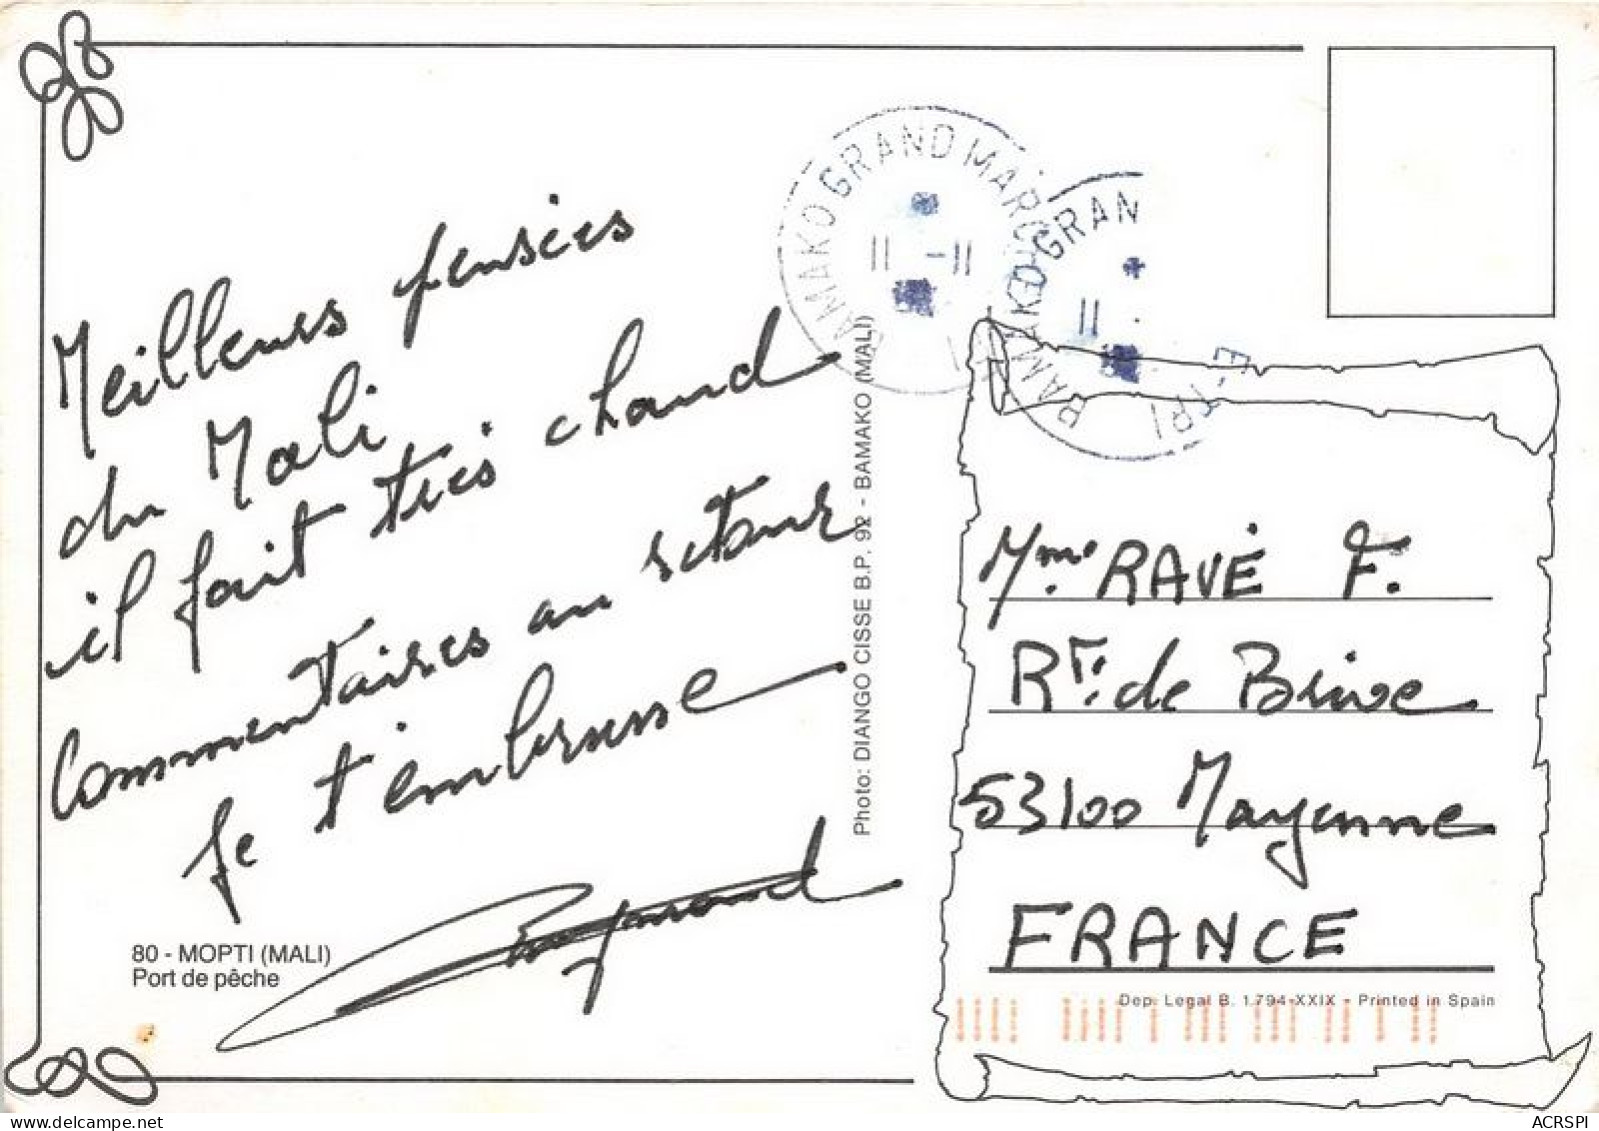 Meilleures pensées
du Mali
il fait très chaud
Commentaires au retour
Je t'embrasse
Raymond
80 - MOPTI (MALI)
Port de pêche
Photo: DIANGO CISSE B.P. 92 - BAMAKO (MALI)
BAMAKO GRAND MARCHE
11 -11
BAMAKO GRAN
11
E-TRI
Mme RAVÉ F.
Rte de
53100 Mayenne
FRANCE
Dep. Legal B. 1.794-XXIX - Printed in Spain
ACRSPI